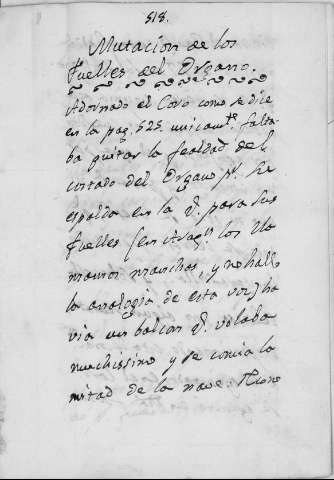 518.
Mutacion de los
Fuelles del Organo.
Adornado el Coro como se dice
en la pag. 525. unicamte. falta
ba quitar la fealdad del
costado del Organo pr. la
espalda en la q. para sus
fuelles (en Aragn. los lla
mamos manchas, y no hallo
la analogia de esta voz) ha
via un balcon q. volaba
muchissimo y se comia la
mitad de la nave: